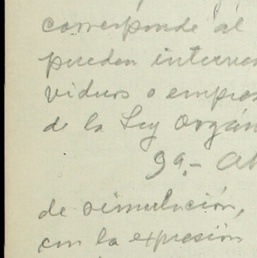 corresponde al
pueden interven
viduos o empres
de la Ley Orgán
9a.- Al
de simulación,
con la expresión